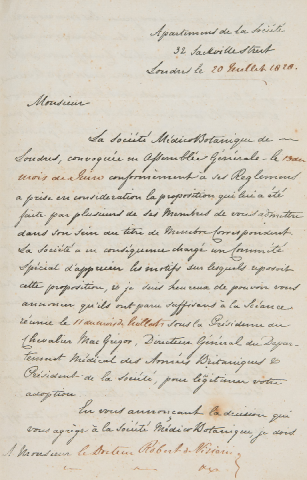 Apartemens de la Société
32 Sackville Street
Londres le 20 Juillet 1828.
Monsieur
La Société Médico Botanique de
Londres, convoquée en Assemblée Générale le 13 du
mois de Juin conformément à ses Reglemens
a prise en considération la proposition qui lui a été
faite par plusieurs de ses Membres de vous admettre
dans son sein au titre de Membre Correspondant
La Société a en consequence chargé un Committé
Spécial d'apprecier les motifs sur lesquels reposait
cette proposition, et je suis heureux de pouvoir vous
annoncer qu'ils ont paru suffisans à la Séance
réunie le 11 du mois de Juillet sous la Présidence du
Chevalier MacGrigor, Directeur Général du Depar-
tement Médical des Armées Britaniques &
Président de la Société, pour légitimer votre
adoption
En vous annoncant la decision qui
vous agrège à la Société Médico Botanique, je dois
A Monsieur le Docteur Robert de Visiani